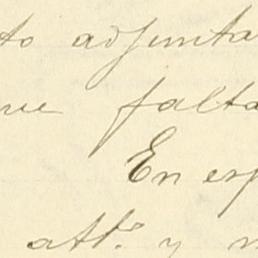 to adjunta
ue falta
En esp
att.º y